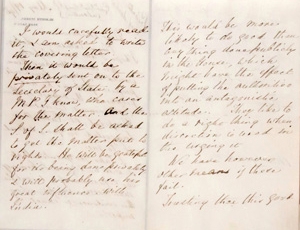 I would carefully read
it, I am asked to write
the covering letter.
Then it would be
privately sent on to the
Secretary of State by a
M.P. I know, who cares
for the matter. And the
S of S. shall be asked
to get the matter put to
rights. He will be grateful
for its being done privately
& will probably use his
great influence with
India.
This would be more
likely to do good than
any thing done publicly
in the House, which
might have the effect
of putting the authorities
into an antagonistic
attitude. They like to
do a right thing when
discretion is used in
the urging it.
We have however
other of those
Trusting that this good